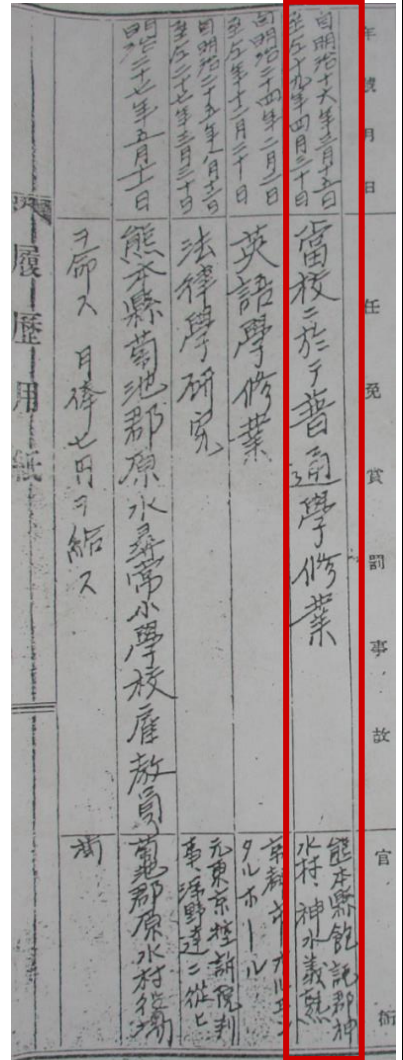 年號月日 任免賞罰事故 官衙
自明治十六年三月十五日
至仝十九年四月三十日
當校ニ於テ普通學修業
熊本縣飽託郡神
水村、神水義塾
自明治二十四年二月一日
至仝年十二月二十日
英語學修業
京都
タルホール
自明治二十五年八月十二日
至仝二十七年三月三十日
法律學研究
元東京控訴院判
事、淺野達ニ從ヒ
明治二十七年五月十二日
熊本縣菊池郡原水尋常小學校雇教員
菊池郡原水村役場
ヲ命ス 月俸七円ヲ給ス
履歴用紙